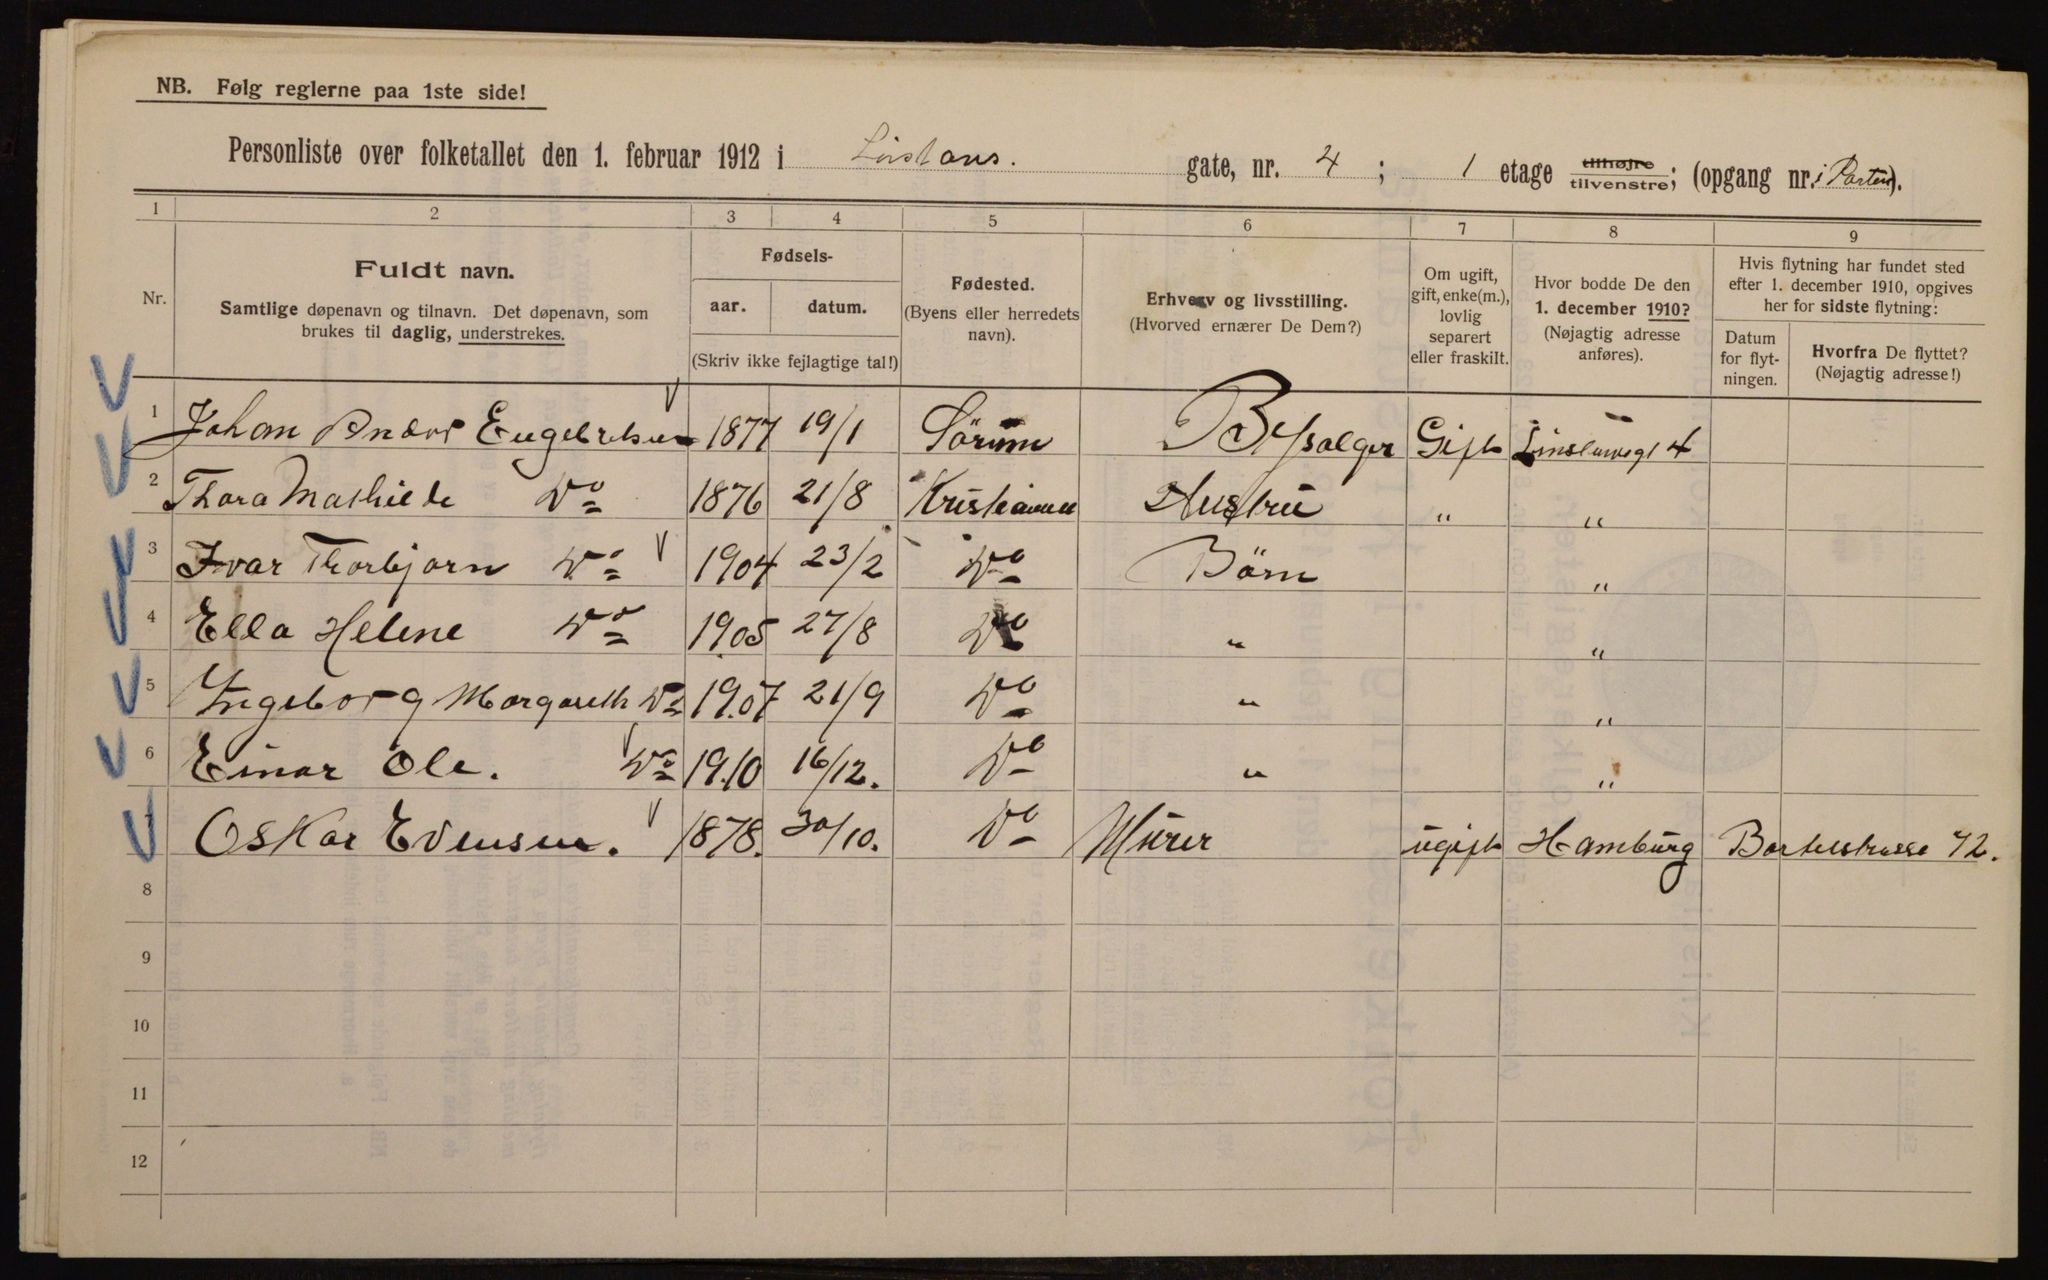 NB. Følg reglerne paa 1ste side!
Personliste over folketallet den 1. februar 1912 i gate, nr. 4; 1 etage tilhøjre tilvenstre; (opgang nr. i Parten).
1 2 3 4 5 6 7 8 9
Nr.
Fuldt navn.
Samtlige døpenavn og tilnavn. Det døpenavn, som
brukes til daglig, understrekes.
Fødsels-
aar. datum.
(Skriv ikke fejlagtige tal!)
Fødested.
(Byens eller herredets
navn).
Erhverv og livsstilling.
(Hvorved ernærer De Dem?)
Om ugift,
gift, enke(m.),
lovlig
separert
eller fraskilt.
Hvor bodde De den
1. december 1910?
(Nøjagtig adresse
anføres).
Hvis flytning har fundet sted
efter 1. december 1910, opgives
her for sidste flytning:
Datum
for flyt-
ningen.
Hvorfra De flyttet?
(Nøjagtig adresse!)
1 Johan Engebretsen 1877 19/1 Sörum Gift 4
2 Thora Mathilde Do 1876 21/8 Kristiania Hustru " "
3 Ivar Thorbjørn Do 1904 23/2 Do Börn "
4 Ella Helene Do 1905 27/8 Do " "
5 Yngeborg Margareth Do 1907 21/9 Do " "
6 Einar Ole. Do 1910 16/12. Do " "
7 Oskar Evensen. 1878. 30/10. Do Murer ugift Hamburg 72.
8
9
10
11
12